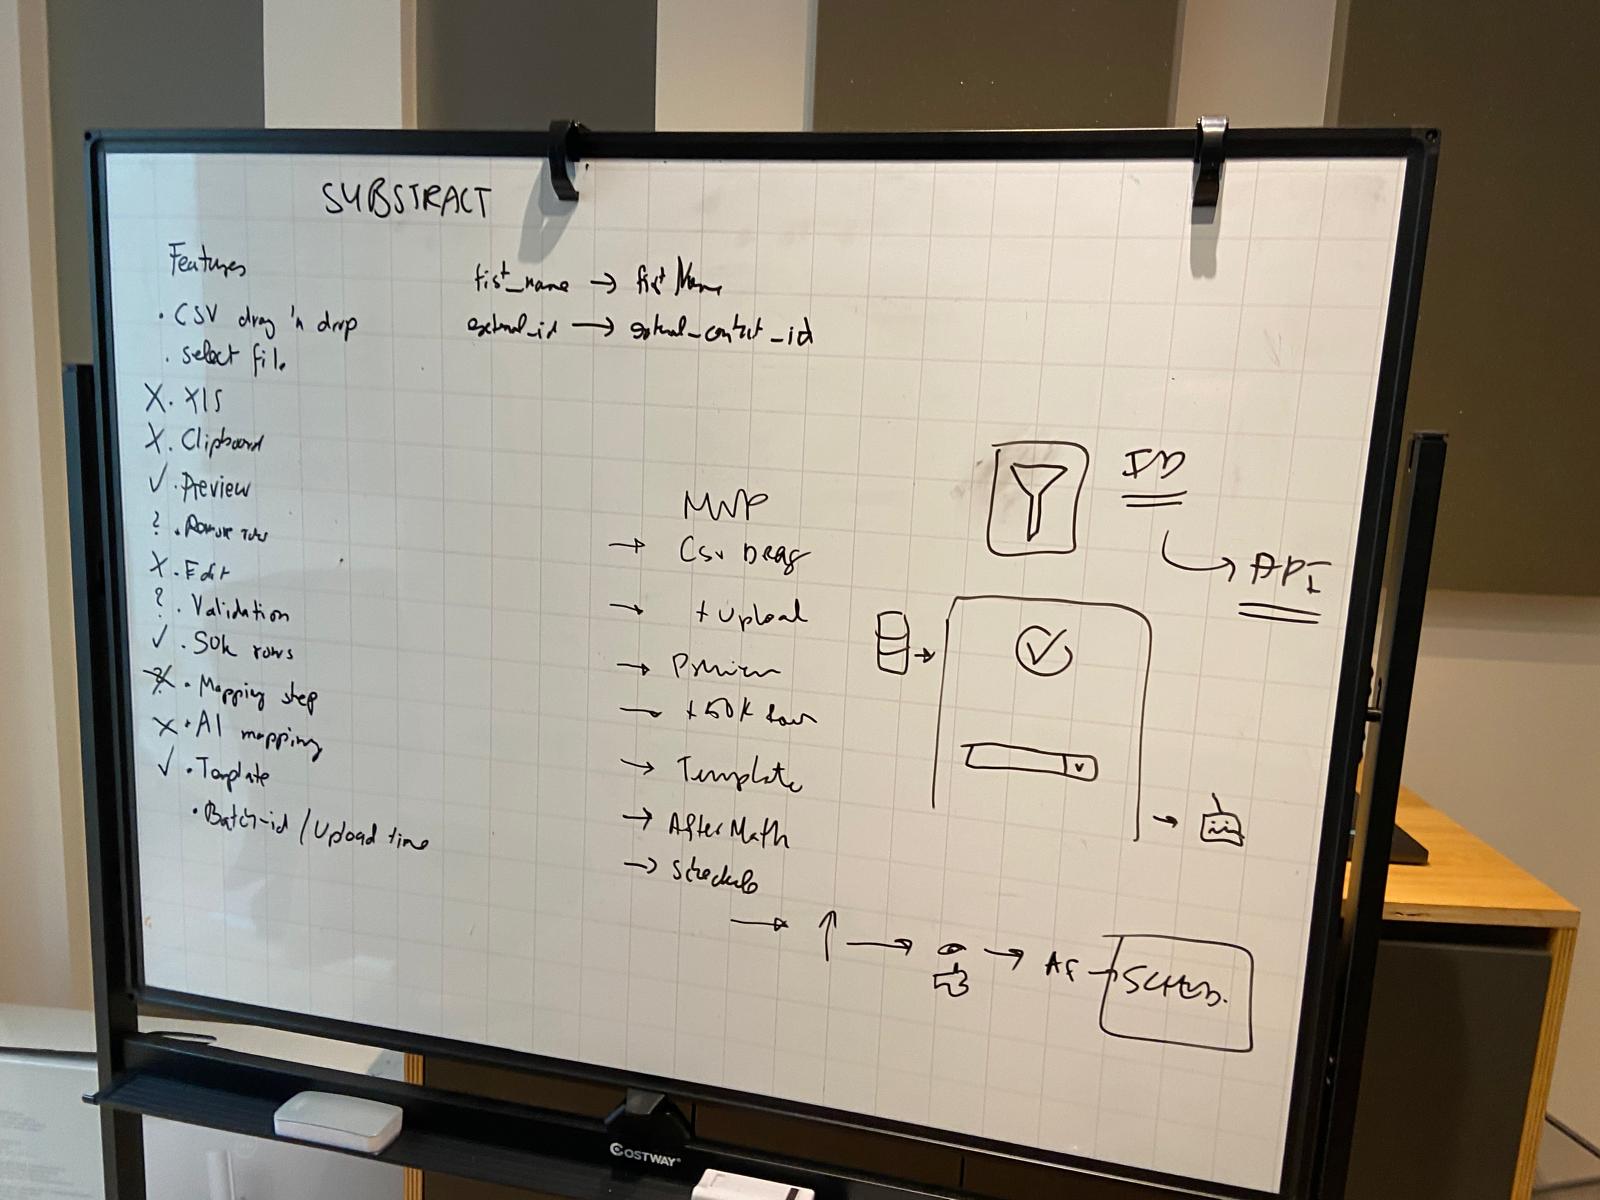 SUBSTRACT
Features
. CSV drag 'n drop
. select file
X. XlS
X. Clipboard
✓. Preview
? . Remove rows
X. Edit
? . Validation
✓. 50k rows
X. Mapping step
X. AI mapping
✓. Template
. Batch-id / Upload time
fist_name → first Name
external_id → external_contact_id
MVP
→ CSV Drag
→ + Upload
→ Preview
→ +50K rows
→ Template
→ AfterMath
→ Schedule
ID
API
→ ↑ → → Af → SCHED.
COSTWAY